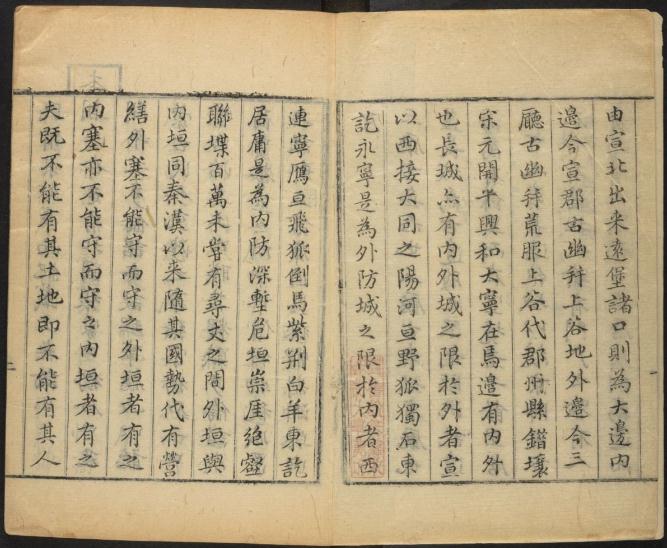 由宣北出来遠堡諸口則為大邊内
邊今宣郡古幽并上谷地外邊今三
廳古幽并荒服上谷代郡州縣錯壤
宋元開平興和大寧在焉邊有内外
也長城亦有内外城之限於外者宣
以西接大同之陽河亘野狐獨石東
訖永寧是為外防城之限於内者西
連寧鴈亘飛狐倒馬紫荆白羊東訖
居庸是為内防深塹危垣崇厓絶壑
聯堞百萬未嘗有尋丈之間外垣與
内垣同秦漢以来隨其國勢代有營
繕外塞不能守而守之外垣者有之
内塞亦不能守而守之内垣者有之
夫既不能有其土地即不能有其人